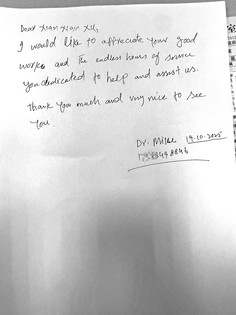 Dear Xian Xian Xu,
I would like to appreciate your good
works and The endless hours of service
you dedicated to help and assist us.
Thank you much and very nice to see
you
Dr. 19.10.2025